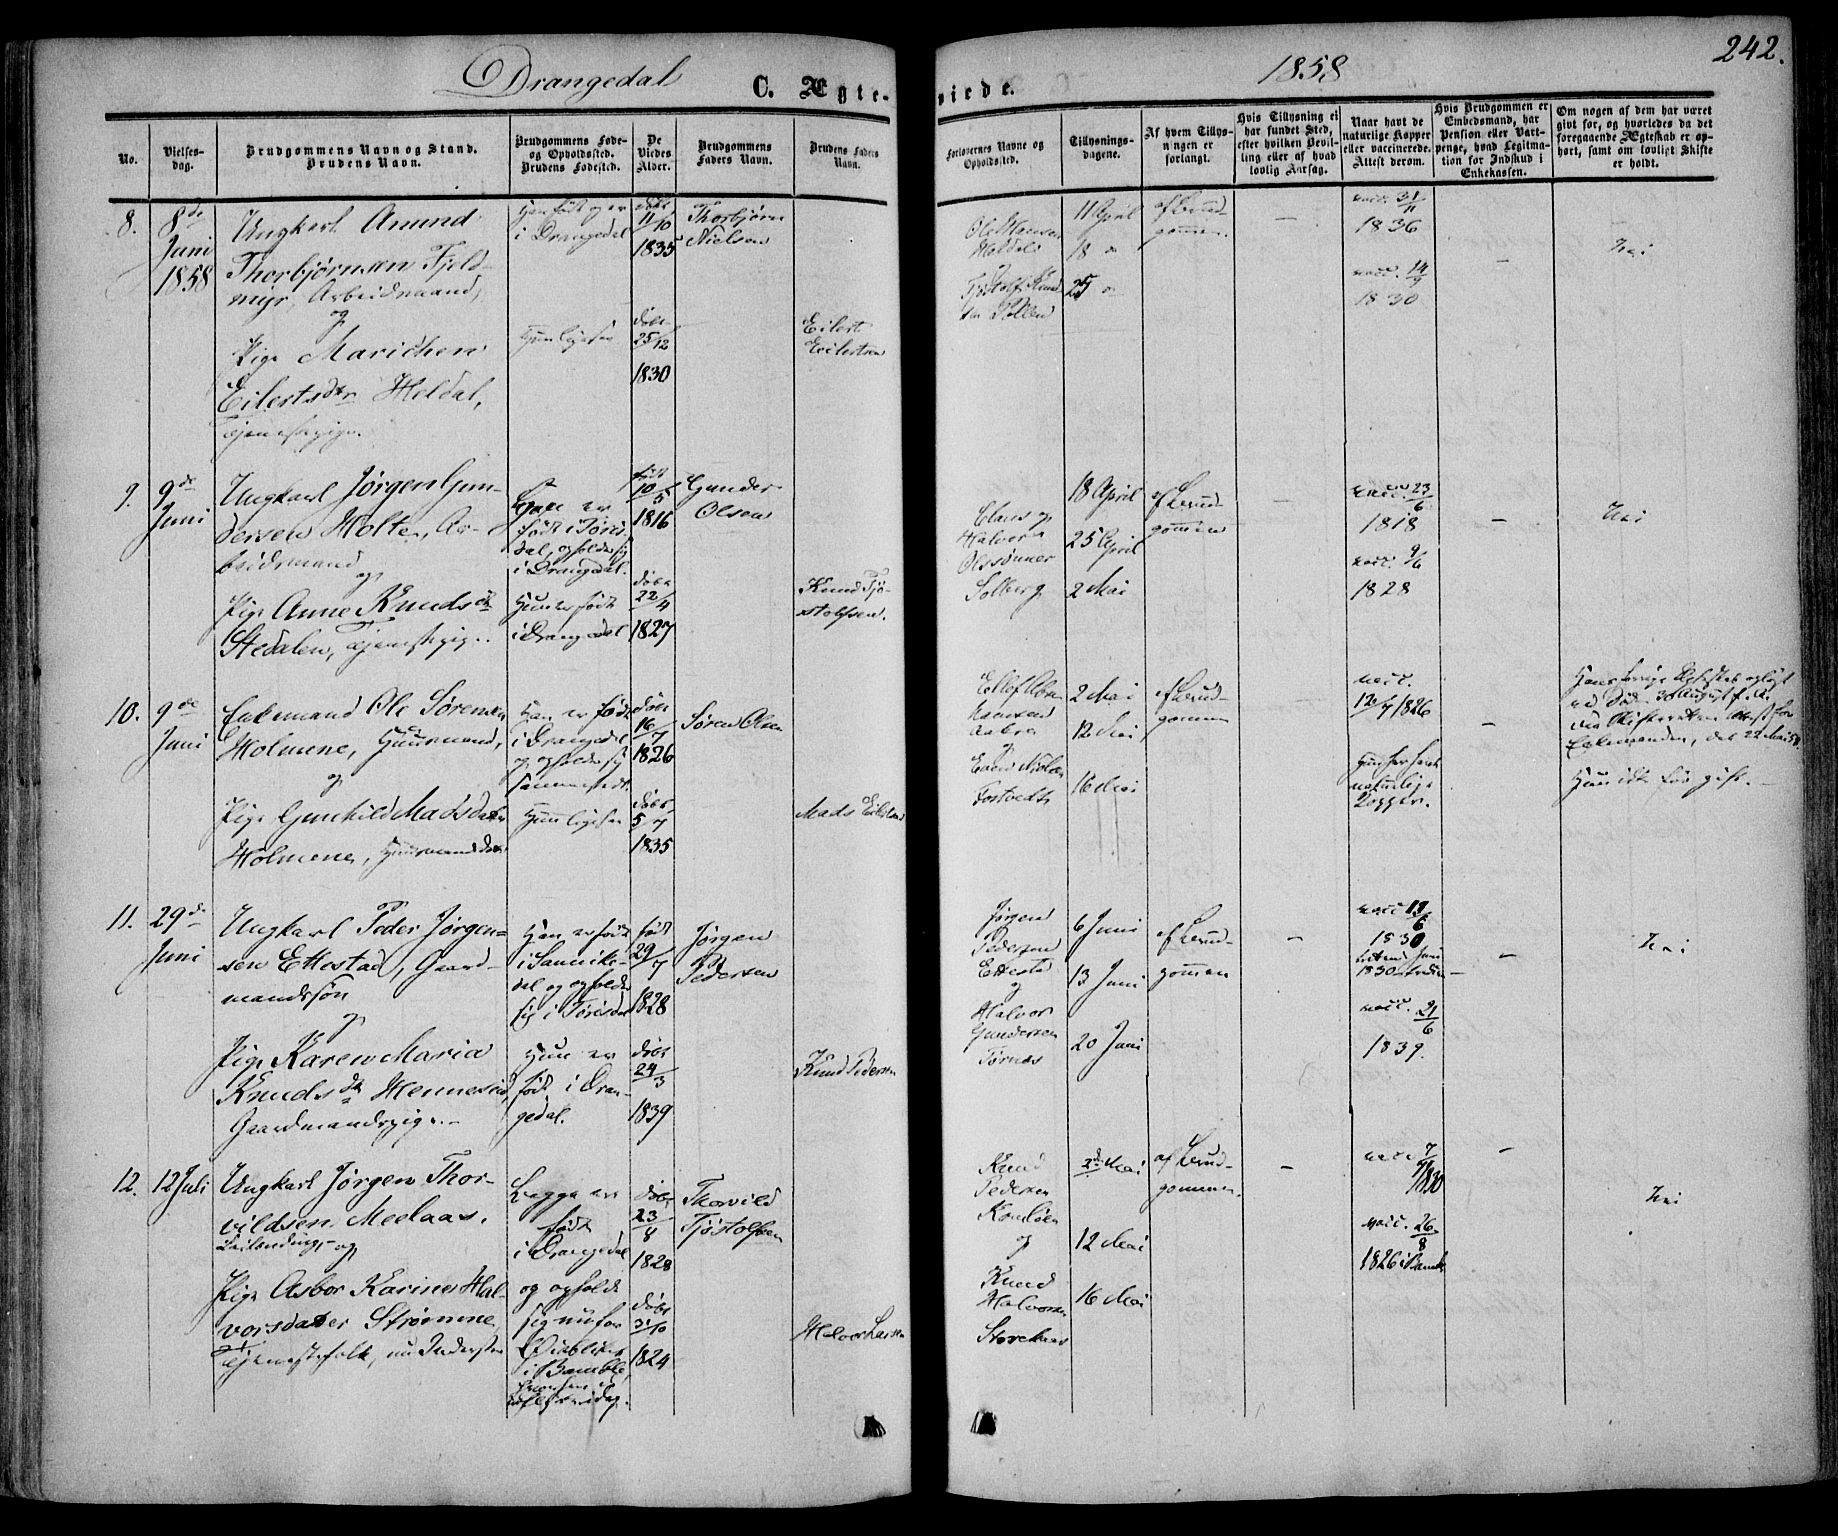 Drangedal C. Ægte-
viede. 1858 242.
No.
Vielses-
dag.
Brudgommens Navn og Stand.
Brudens Navn.
Brudgommens Føde-
og Opholdssted.
Brudens Fødested.
De
Viedes
Alder.
Brudgommens
Faders Navn.
Brudens Faders
Navn.
Forlovernes Navne og
Opholdssted.
Tillysnings-
dagene.
Af hvem Tillys-
ningen er
forlangt.
Hvis Tillysning ei
har fundet Sted,
efter hvilken Bevil-
ling eller af hvad
lovlig Aarsag.
Naar havt de
naturlige Kopper
eller vaccinerede.
Attest derom.
Hvis Brudgommen er
Embedsmand, har
Pension eller Vart-
penge, hvad Legitma-
tion for Indskud i
Enkekassen.
Om nogen af dem har været
givt før, og hvorledes da det
foregaaende Ægteskab er op-
hørt, samt om lovligt Skifte
er holdt.
8.
8de
Juni
1858
Ungkarl Amund
Thorbjørnsen Fjeld-
myr, Arbeidsmand,
og
Pige Marichen
Eilertsdtr Heldal,
Tjenestepige.
Han født og er
i Drangedal
Hun ligesaa
døbt
11/10
1835
døbt
25/12
1830
Thorbjørn
Nielsen
Eilert
Eilertsen
Ole Hansen
Heldal
11 April
18 "
25 "
af Brud-
gommen.
–
vacc. 31/11
1836
vacc. 14/9
1830
–
Nei
9.
9de
Juni
Ungkarl Jørgen Gun-
dersen Holte, Ar-
beidsmand
og
Pige Anne Knudsdtr
Stedalen, Tjenestepige.
født i Tøris-
dal, opholder sig
i Drangedal.
Hun er født
i Drangedal
født
10/5
1816
døbt
22/4
1827
Gunder
Olsen
Knud Tjø-
stolfsen.
Claus og
Halvor
Olssønner
Solberg
18 April
25 April
2 Mai
af Brud-
gommen
–
vacc. 23/6
1818
vacc. 9/6
1828
–
Nei
10.
9de
Juni
Enkemand Ole Sørensen
Holmene, Huusmand,
og
Pige Gunhild Madsdatter
Holmene, Huusmandsdatter
Han er født
i Drangedal
og opholder sig
sammesteds.
Hun ligesaa
døbt
16/7
1826
døbt
5/7
1835
Søren Olsen
Mads Eilertsen
2 Mai
12 Mai
16 Mai
af Brud-
gommen
vacc.
12/7 1826
Hun har havt
naturlige
Kopper.
–
Hans forrige Ægteskab opløst
ved Død 30 August f. A.
Enkemanden, del 22 Mai 58.
Hun ikke før gift. –
11.
29de
Juni
Ungkarl Peder Jørgen-
sen Ettestad, Gaard-
mandssøn
og
Pige Karen Maria
Knudsdtr Henneseid,
Gaardmandspige. –
Han er født
i Sannike-
dal og opholder
sig i Tørisdal
Hun er
født i Dran-
gedal.
født
29/7
1828
døbt
24/3
1839
Jørgen
Pedersen
Knud Pedersen
Jørgen
Pedersen
Ettestad
og
Halvor
Gundersen
Tørnes
6 Juni
13 Juni
20 Juni
af Brud-
gommen
–
vacc 19/6
1830
vacc. 21/6
1839.
–
Nei
12.
12 Juli
Ungkarl Jørgen Thor-
vildsen Meelaas.
og
Pige Asbor Karine Hal-
vorsdatter Strømme
Tjenestefolk, nu Inderster
Begge er
født
i Drangedal
og opholde
sig nu for
i Bamble,
døbt
23/8
1828
døbt
31/10
1824
Thorvild
Tjøstolfsen
Halvor Larsen
Knud
Pedersen
og
Knud
Halvorsen
Storekaas
2d Mai
12 Mai
16 Mai
af Brud-
gommen.
–
vacc. 7/7
1830
vacc. 26/8
1826 i Bamble
–
Nei